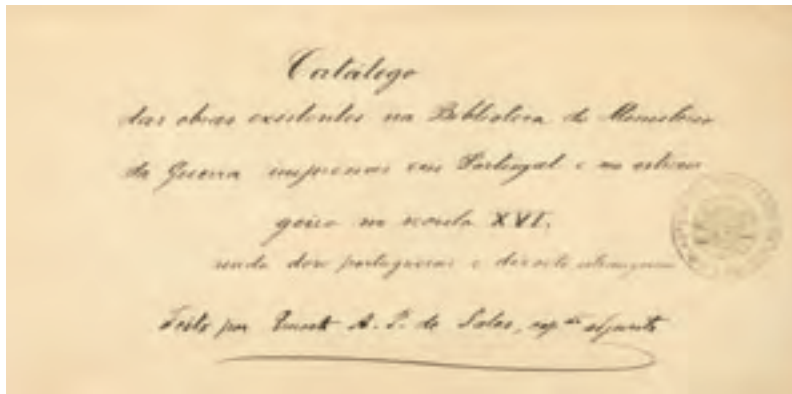 Catálogo
das obras existentes na Bibliotheca do Ministerio
da Guerra impressas em Portugal e no estran
geiro no seculo XVI.
sendo doze portuguezas e dezoito estrangeiras
Feito por A. P. de Salas, adjunto